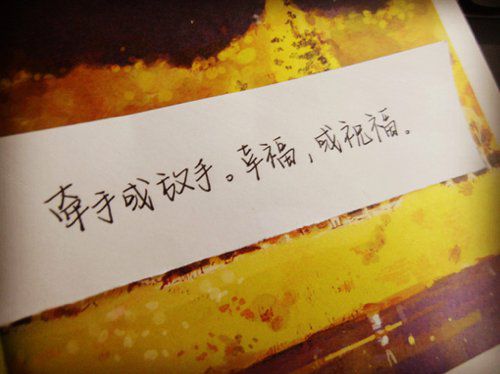 牵手成放手。幸福，成祝福。